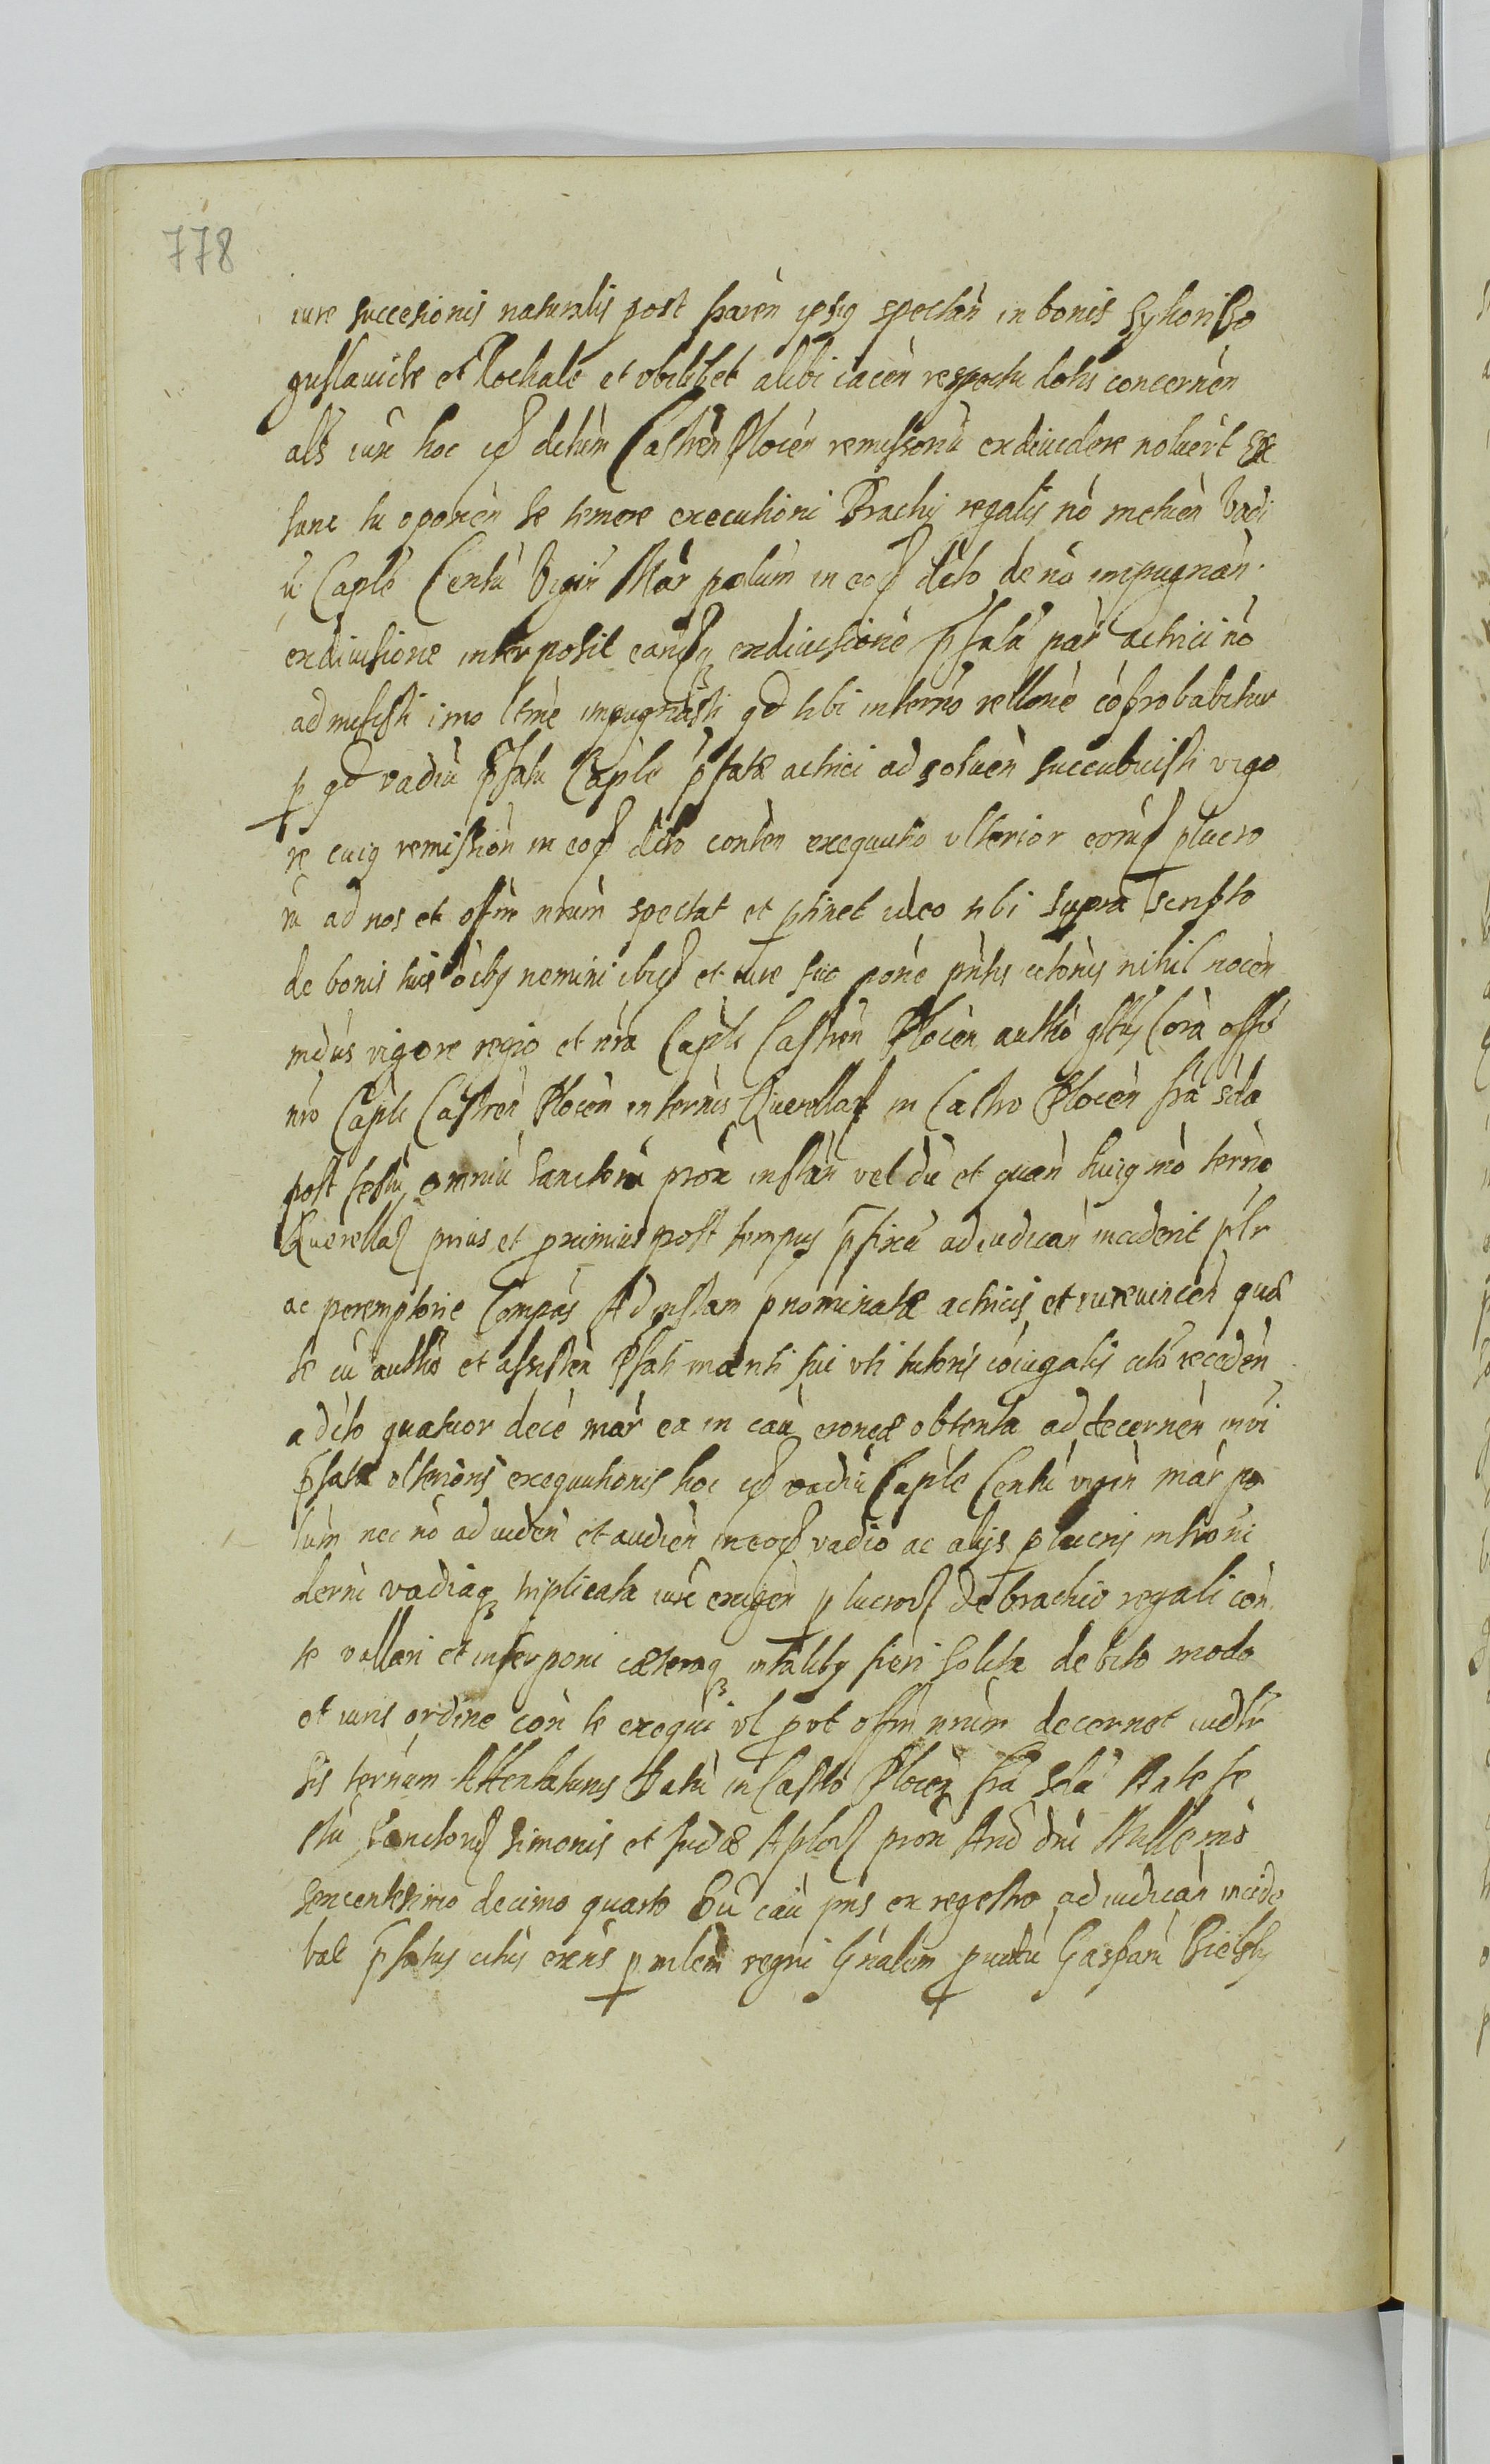 778
iure succesionis naturalis post paren ipsig spectan in bonis Sykori
guslavicke et Rochale et vbilibet alibi iacen respectu dotis concernen
als iure hoc id debitum Castren Plocen remissoriu exdiuidere noluerit
tu oponen se temere executioni Brachij regalis no metuen Vadi
u Caple Centu Vigin Mar polum in eod dcto de no impugnan
exdiuisione interposit eandq exdiuisione psata par actrici no
admisisti imo tme impugnasti qd tibi in terno rellone coprobabitur
p qd vadiu psatu Caple psatæ actrici ad soluen succubuisti vigo
re cuig remission in eod dcto conten exequutio vlterior eorud plucro
ru ad nos et offm nrum spectat et ptinet ideo tibi supra scripto
de bonis tuis oibg nemini ibid et iure suo pone pntis citonis nihil nocen
mdus vigore regio et nra Caple Castren Plocen autho qtus Cora offo
nro Caple Castren Plocen in ternis Querellar in Castro Plocen fra scda
post festu omniu Sanctoru prox instan vel du et quan huig mo terno
Querellar prius et proximius post tempus pfixu ad iudican inciderit plr
ac peremptorie Compas Ad instan pnominatæ actricis et iureuincen quæ
te cu autho et assisten Psati mariti sui vti tutoris coiugalis cito receden
a dcto quatuor dece mar ea in cau eronee obtenta ad decernen
psatæ vlterioris exequutionis hoc id vadiu Caple Centu vigin mar po
lum nec no ad uiden et audien in eod vadio ac alijs plucris
vadiaq triplicata iure exigen p lucror de brachio regali con
te vallari et interponi cæteraq in talibg fieri solita debito modo
et iuris ordine con te exequi vl put offm nrum decernet iudlr
sis ternum Attentaturus Datu in Castro Plocen fra scda Ante fe
stu Sanctorum Simonis et Judæ Aplor prox Ano dni Millemo
sexcentesimo decimo quarto Du cau pns ex regestro ad iudican incide
bat psatus citus exens p mlem regni Gnalem puidu Gasparu